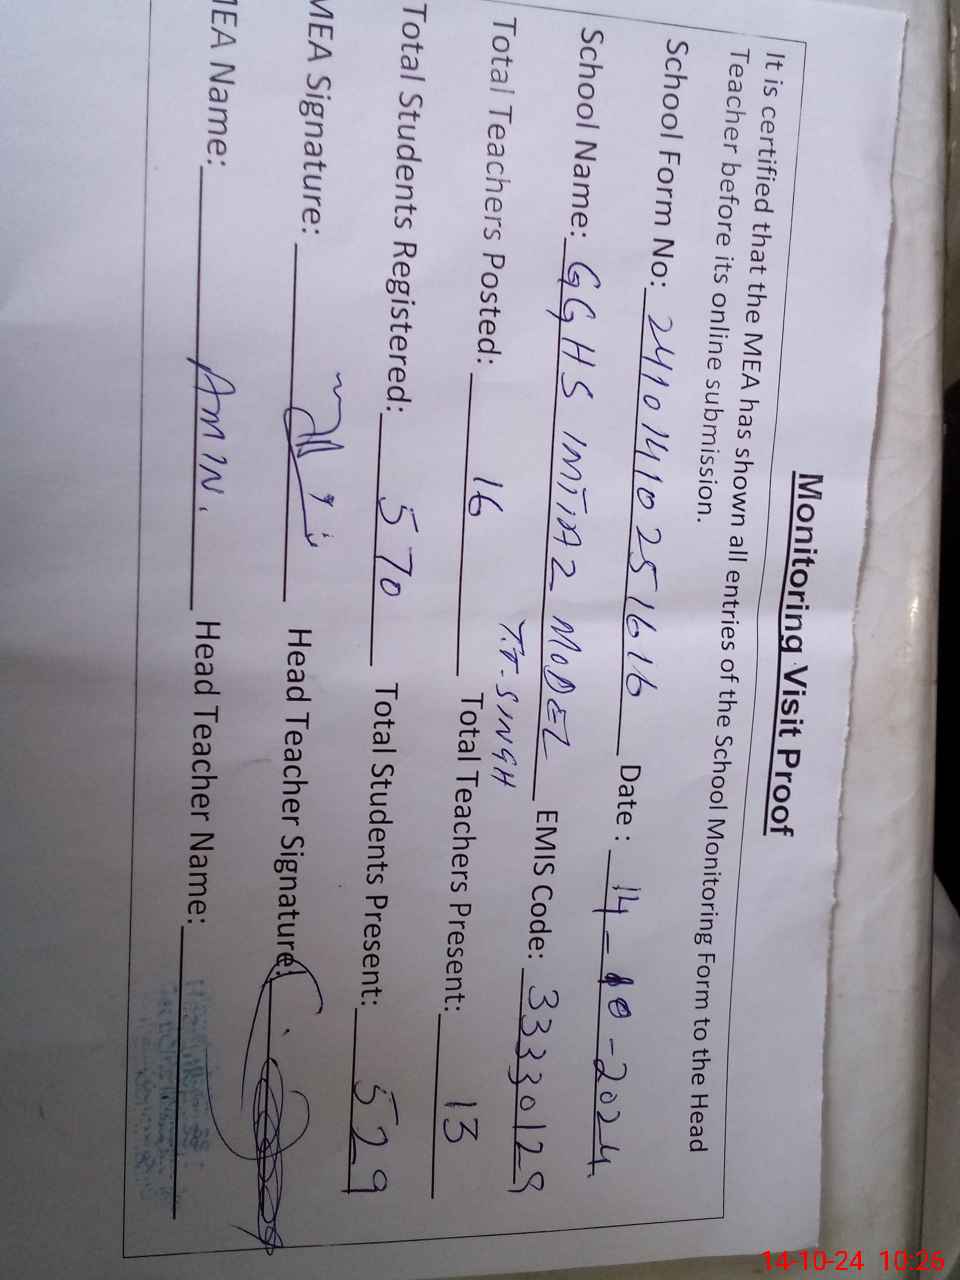 Monitoring Visit Proof
It is certified that the MEA has shown all entries of the School Monitoring Form to the Head
Teacher before its online submission.
School Form No: 24101410251616 Date : 14-10-2024
School Name: GGHS IMTIAZ MODEL EMIS Code: 33330129
T.T-SINGH
Total Teachers Posted: 16 Total Teachers Present: 13
Total Students Registered: 570 Total Students Present: 529
MEA Signature: Head Teacher Signature:
MEA Name: AMIN. Head Teacher Name:
14-10-24 10:26